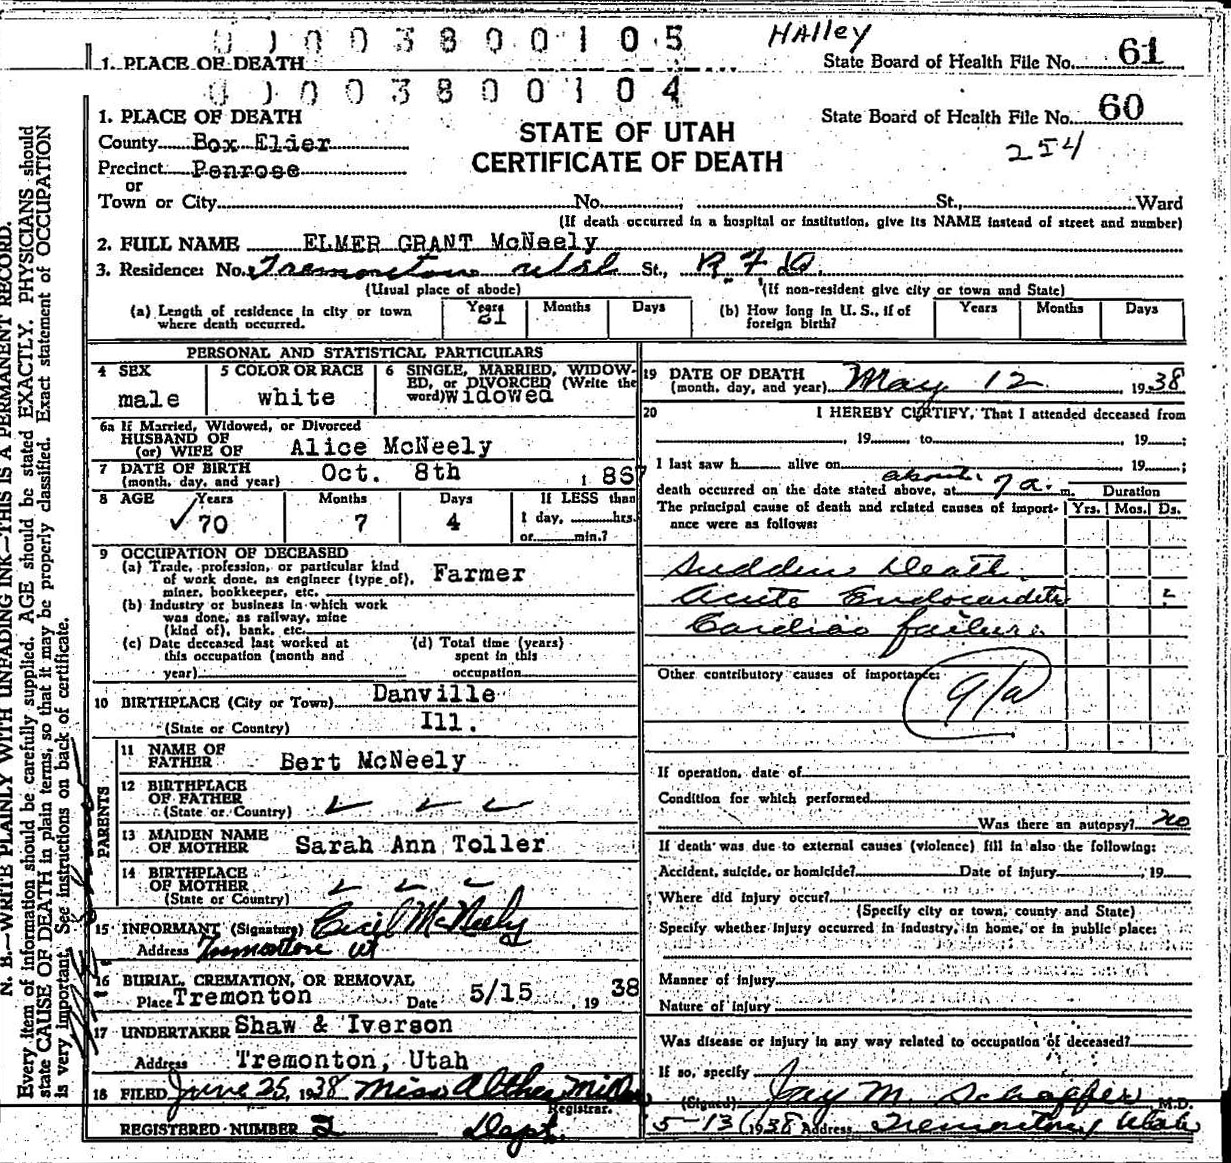 0 1 0 0 3 8 0 0 1 0 5 HAlley
1. PLACE OF DEATH State Board of Health File No. 61
0 1 0 0 3 8 0 0 1 0 4
1. PLACE OF DEATH State Board of Health File No. 60
County Box Elder STATE OF UTAH 254
Precinct Penrose CERTIFICATE OF DEATH
or
Town or City No. St., Ward
(If death occurred in a hospital or institution, give its NAME instead of street and number)
2. FULL NAME ELMER GRANT McNeely
3. Residence: No. Tremonton Utah St., R F D.
(Usual place of abode) (If non-resident give city or town and State)
(a) Length of residence in city or town where death occurred. Years 21 Months Days (b) How long in U. S., if of foreign birth? Years Months Days
PERSONAL AND STATISTICAL PARTICULARS
4 SEX male
5 COLOR OR RACE white
6 SINGLE, MARRIED, WIDOW-
ED, or DIVORCED (Write the
word) widowed
6a If Married, Widowed, or Divorced
HUSBAND OF
(or) WIFE OF Alice McNeely
7 DATE OF BIRTH
(month, day, and year) Oct. 8th 1867
8 AGE Years Months Days If LESS than
✓70 7 4 1 day, hrs.
or min.?
9 OCCUPATION OF DECEASED
(a) Trade, profession, or particular kind
of work done, as engineer (type of),
miner, bookkeeper, etc. Farmer
(b) Industry or business in which work
was done, as railway, mine
(kind of), bank, etc.
(c) Date deceased last worked at
this occupation (month and
year)
(d) Total time (years)
spent in this
occupation
10 BIRTHPLACE (City or Town) Danville
(State or Country) Ill.
PARENTS
11 NAME OF
FATHER Bert McNeely
12 BIRTHPLACE
OF FATHER
(State or Country)
13 MAIDEN NAME
OF MOTHER Sarah Ann Toller
14 BIRTHPLACE
OF MOTHER
(State or Country)
15 INFORMANT (Signature) Cecil McNeely
Address Tremonton Ut
16 BURIAL, CREMATION, OR REMOVAL
Place Tremonton Date 5/15, 1938
17 UNDERTAKER Shaw & Iverson
Address Tremonton, Utah
18 FILED June 25, 1938 Miss Althea Miller
Registrar.
REGISTERED NUMBER 2 Dept.
19 DATE OF DEATH
(month, day, and year) May 12 1938
20 I HEREBY CERTIFY, That I attended deceased from
, 19 to , 19 ;
I last saw h alive on , 19 ;
death occurred on the date stated above, at about 7 a. m.
The principal cause of death and related causes of import-
ance were as follows: Duration
Yrs. Mos. Ds.
Sudden Death
Acute Endocarditis
Cardiac failure
Other contributory causes of importance:
91a
If operation, date of
Condition for which performed
Was there an autopsy? no
If death was due to external causes (violence) fill in also the following:
Accident, suicide, or homicide? Date of injury , 19
Where did injury occur?
(Specify city or town, county and State)
Specify whether injury occurred in industry, in home, or in public place:
Manner of injury
Nature of injury
Was disease or injury in any way related to occupation of deceased?
If so, specify
(Signed) Jay M. Schaffer M.D.
5-13 1938 Address Tremonton, Utah
N. B.—WRITE PLAINLY WITH UNFADING INK—THIS IS A PERMANENT RECORD.
Every item of information should be carefully supplied. AGE should be stated EXACTLY. PHYSICIANS should
state CAUSE OF DEATH in plain terms, so that it may be properly classified. Exact statement of OCCUPATION
is very important. See instructions on back of certificate.